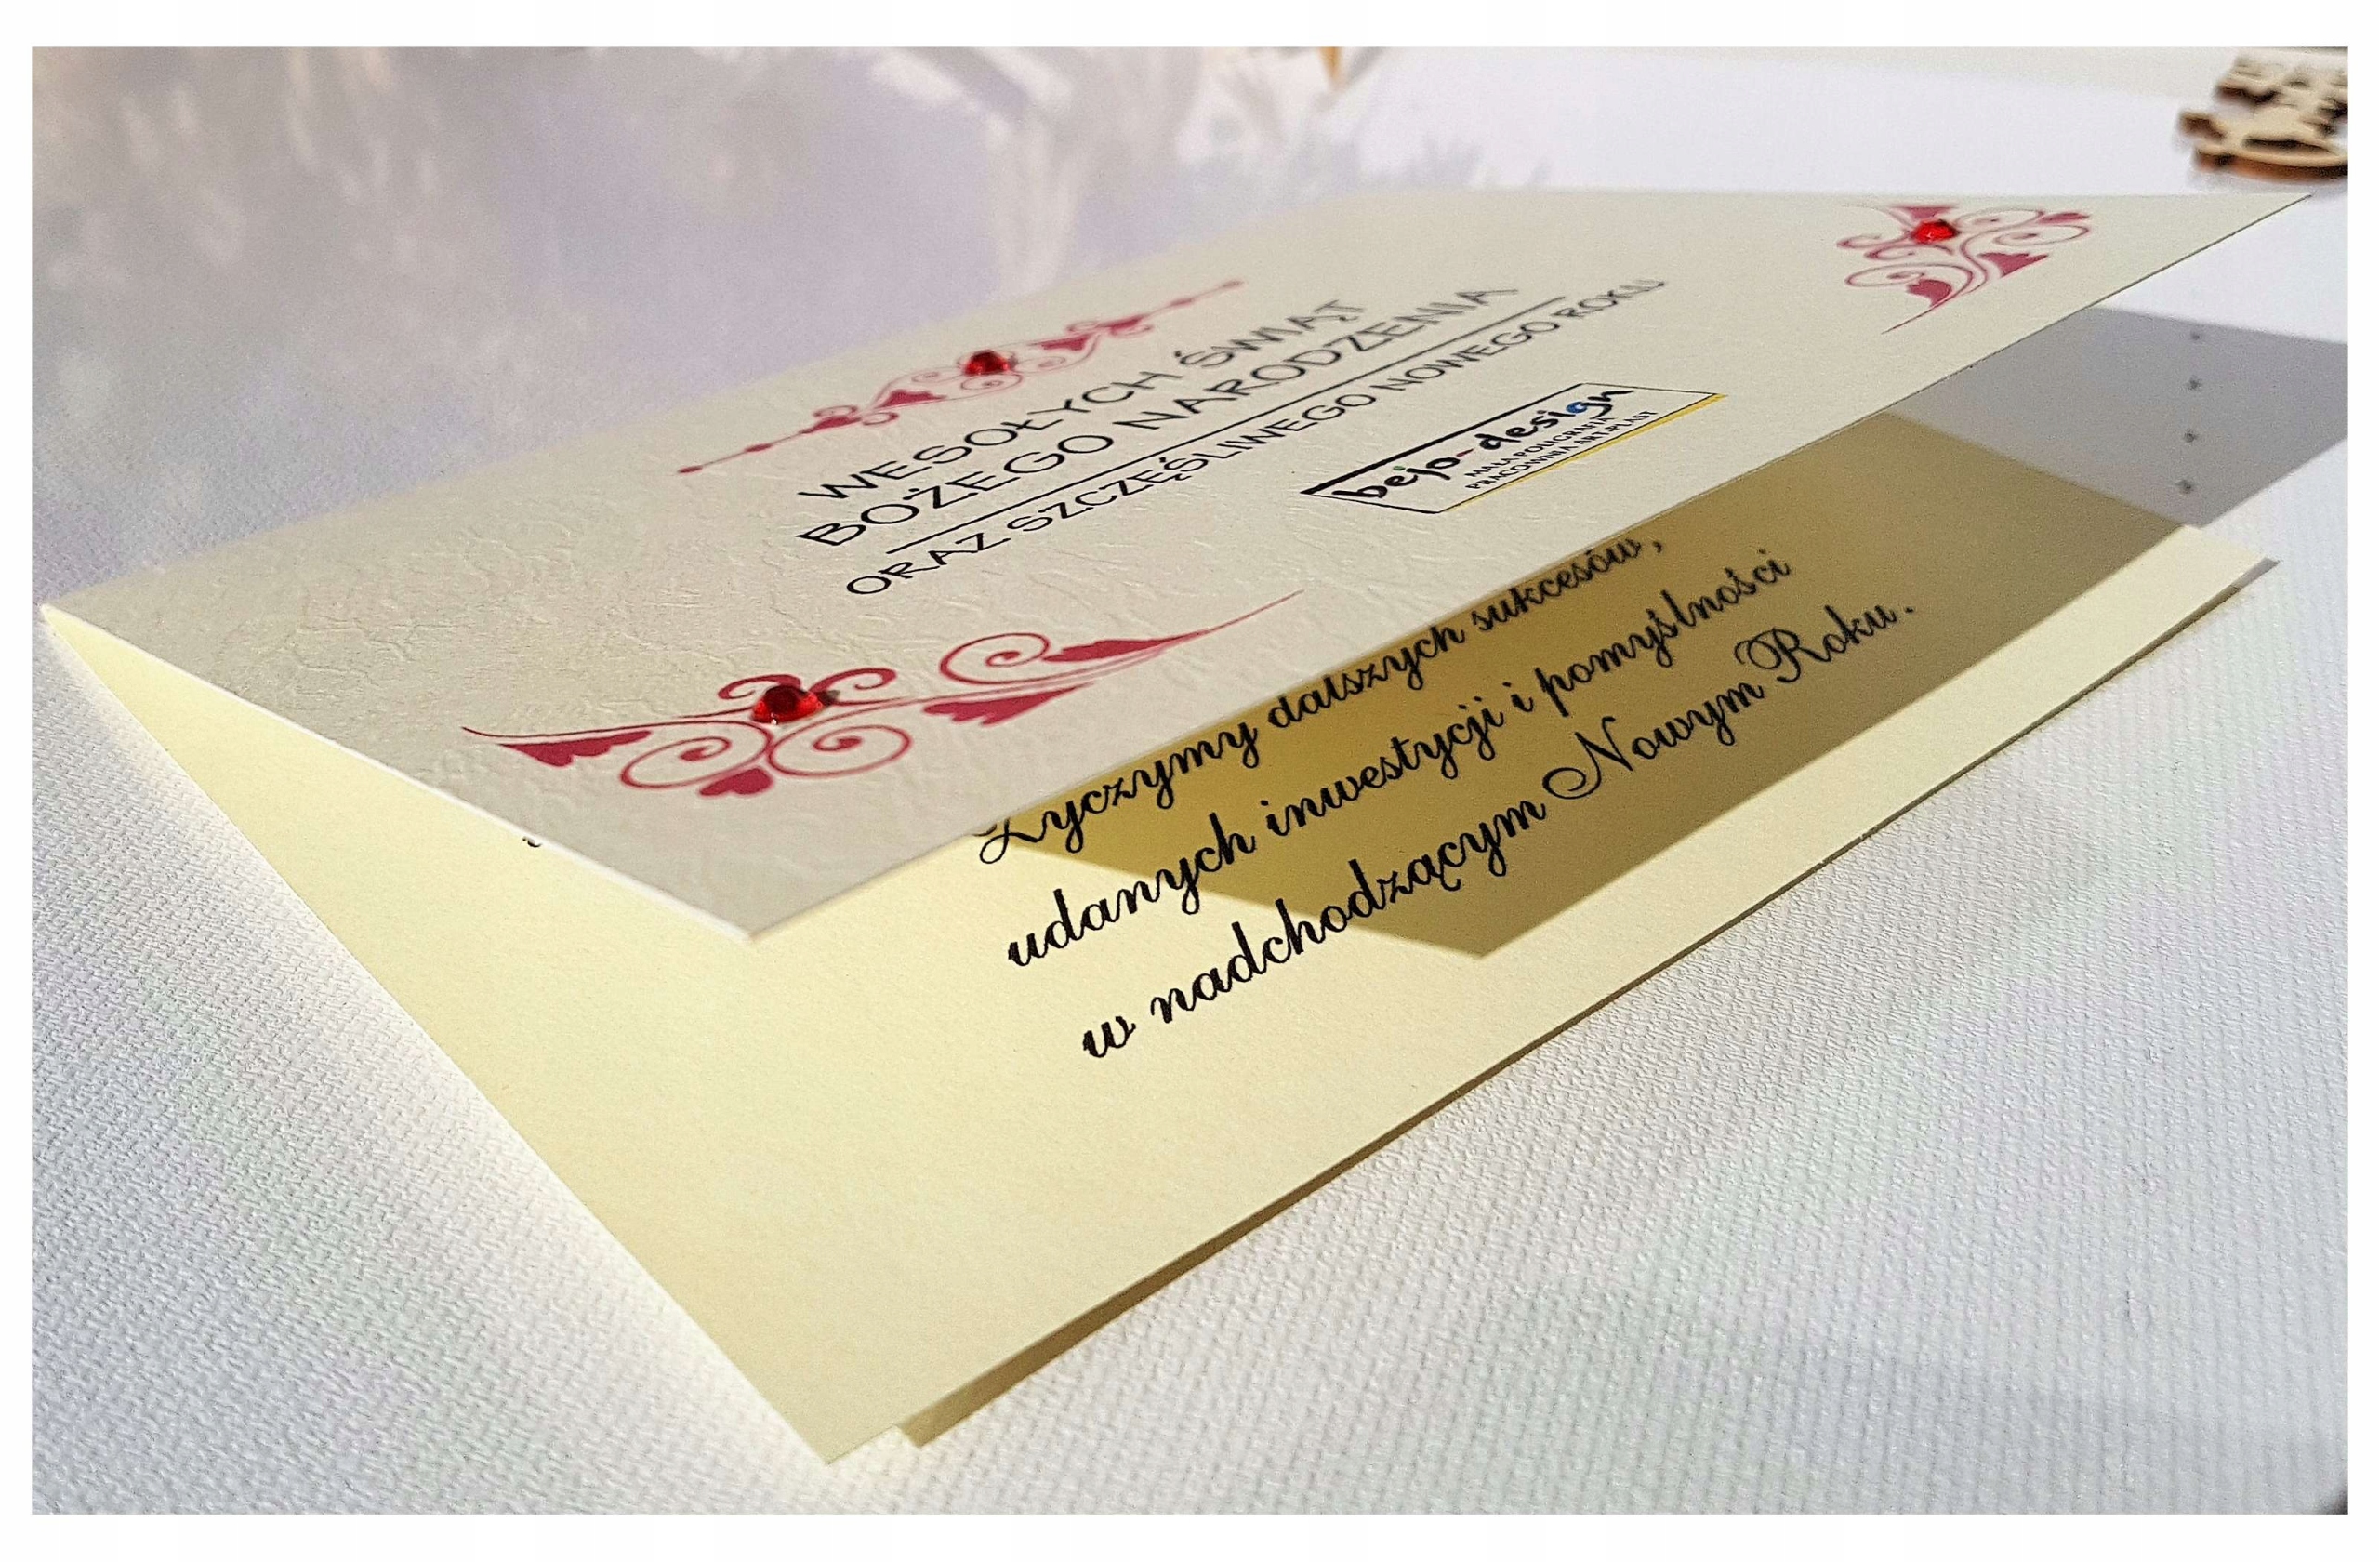 WESOŁYCH ŚWIĄT
BOŻEGO NARODZENIA
ORAZ SZCZĘŚLIWEGO NOWEGO ROKU
bejo-design
MAŁA POLIGRAFIA
PRACOWNIA ART-PLAST
Życzymy dalszych sukcesów,
udanych inwestycji i pomyślności
w nadchodzącym Nowym Roku.